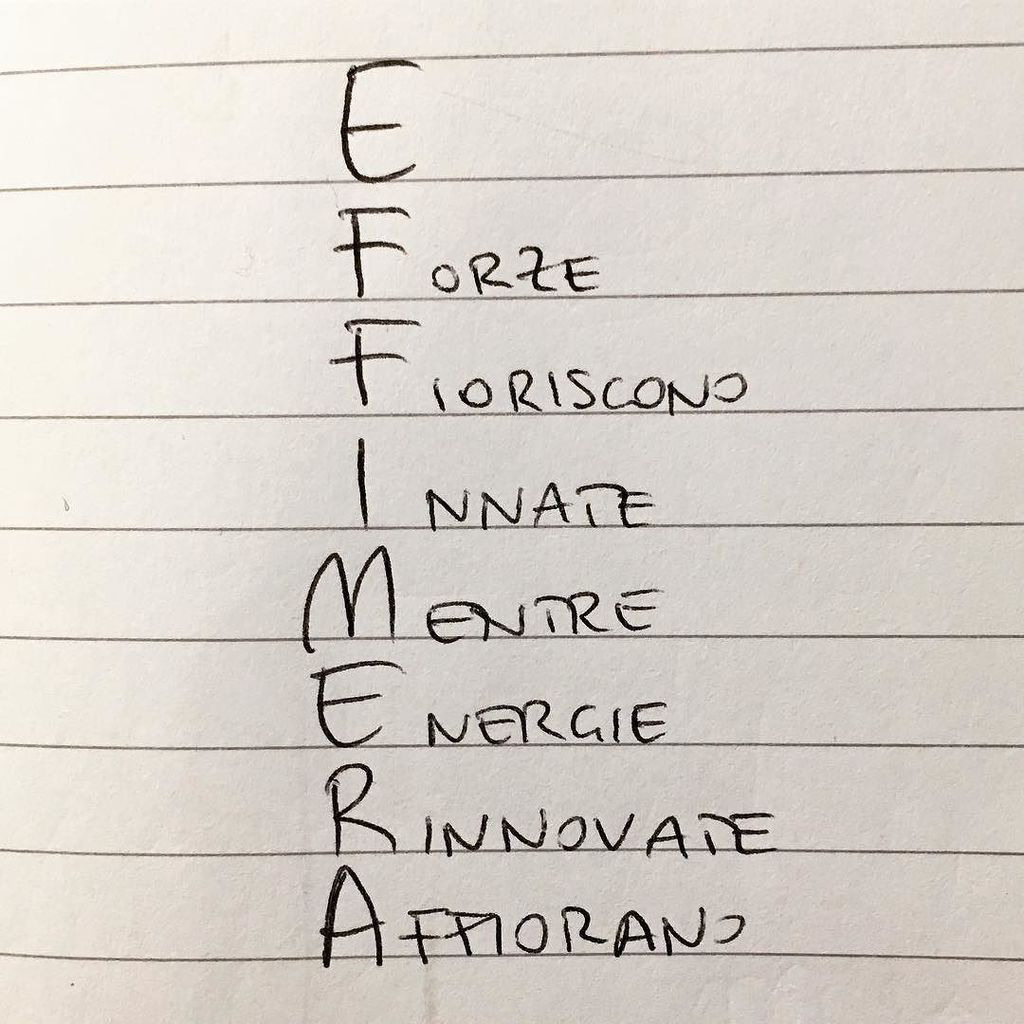 E
FORZE
FIORISCONO
INNATE
MENTRE
ENERGIE
RINNOVATE
AFFIORANO